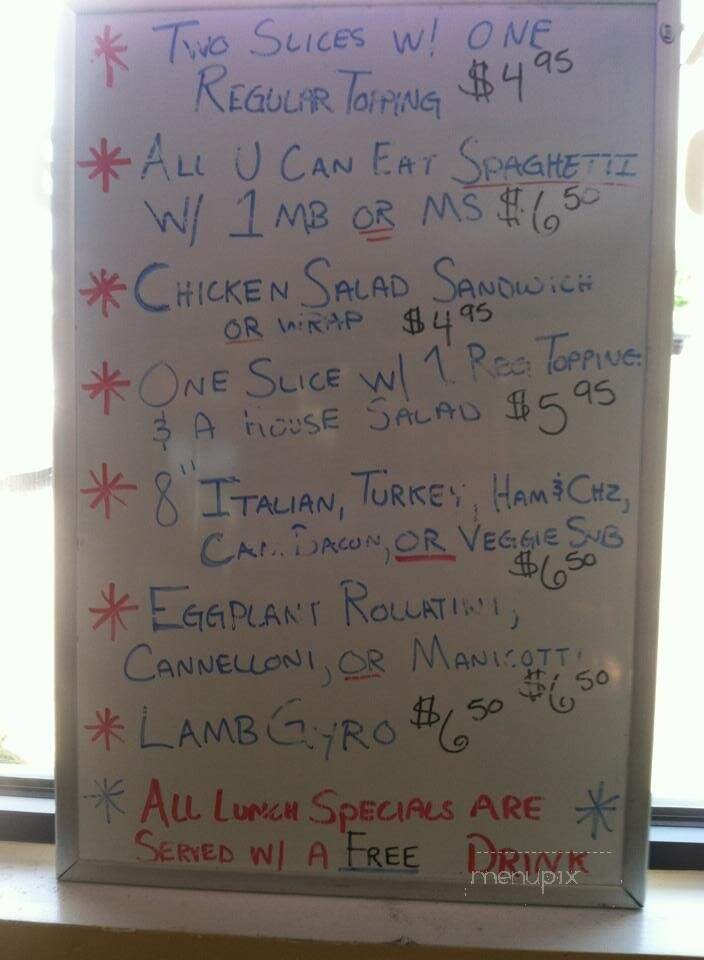 * Two Slices w! One
Regular Topping $4.95
* All U Can Eat Spaghetti
w/ 1 MB or MS $6.50
* Chicken Salad Sandwich
or wrap $4.95
* One Slice w/ 1 Reg Topping
& A House Salad $5.95
* 8" Italian, Turkey, Ham & Chz,
Can. Bacon, or Veggie Sub
$6.50
* Eggplant Rollatini,
Cannelloni, or Manicotti
$6.50
* Lamb Gyro $6.50
* All Lunch Specials are *
Served w/ a Free Drink
menupix